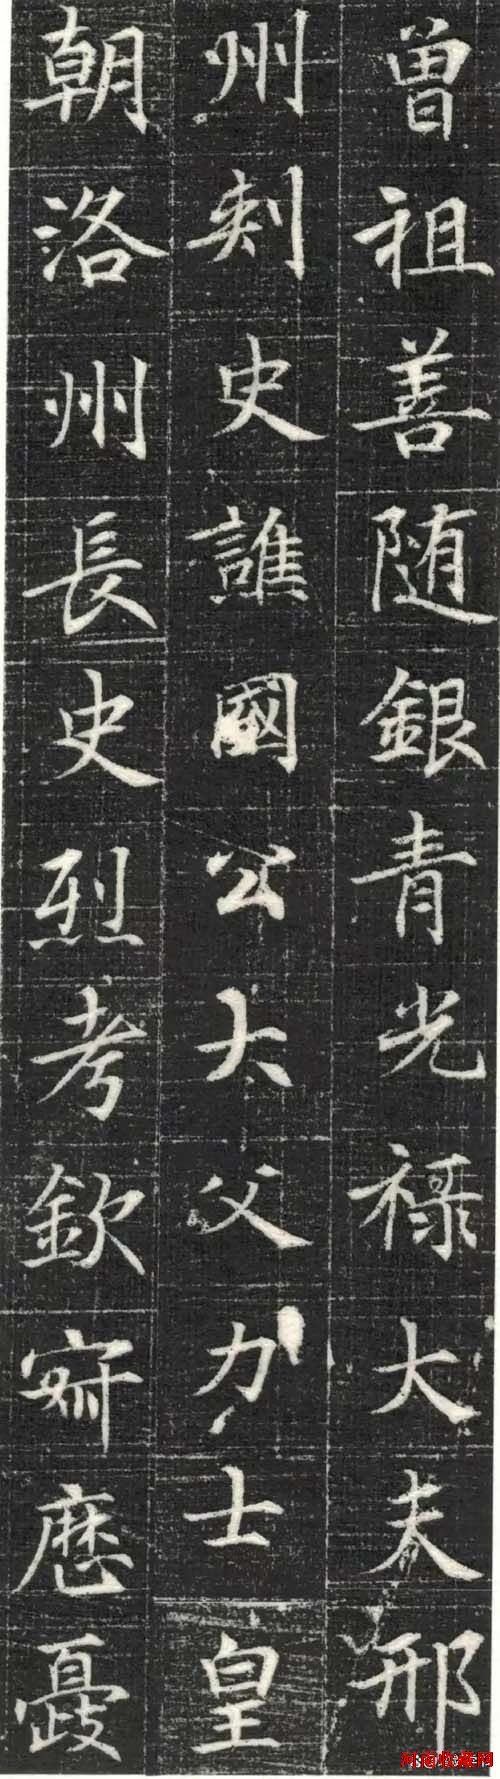 曾祖善随銀青光禄大夫邢
州刺史譙國公大父力士皇
朝洛州長史烈考欽
河南收藏网